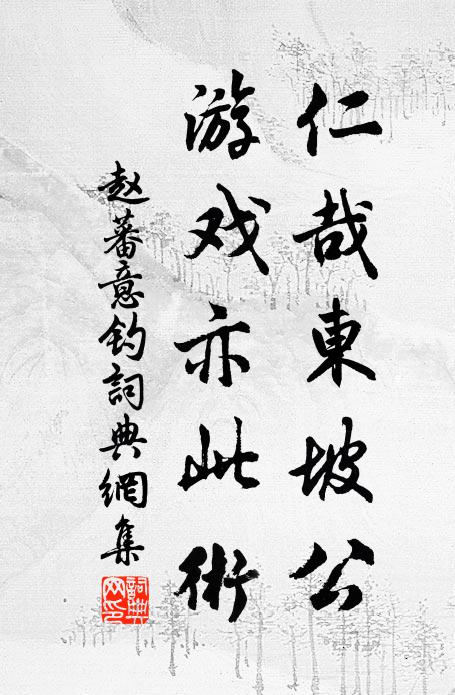 仁哉東坡公
游戏亦此術
赵蕃意钓詞典網集
詞典网印